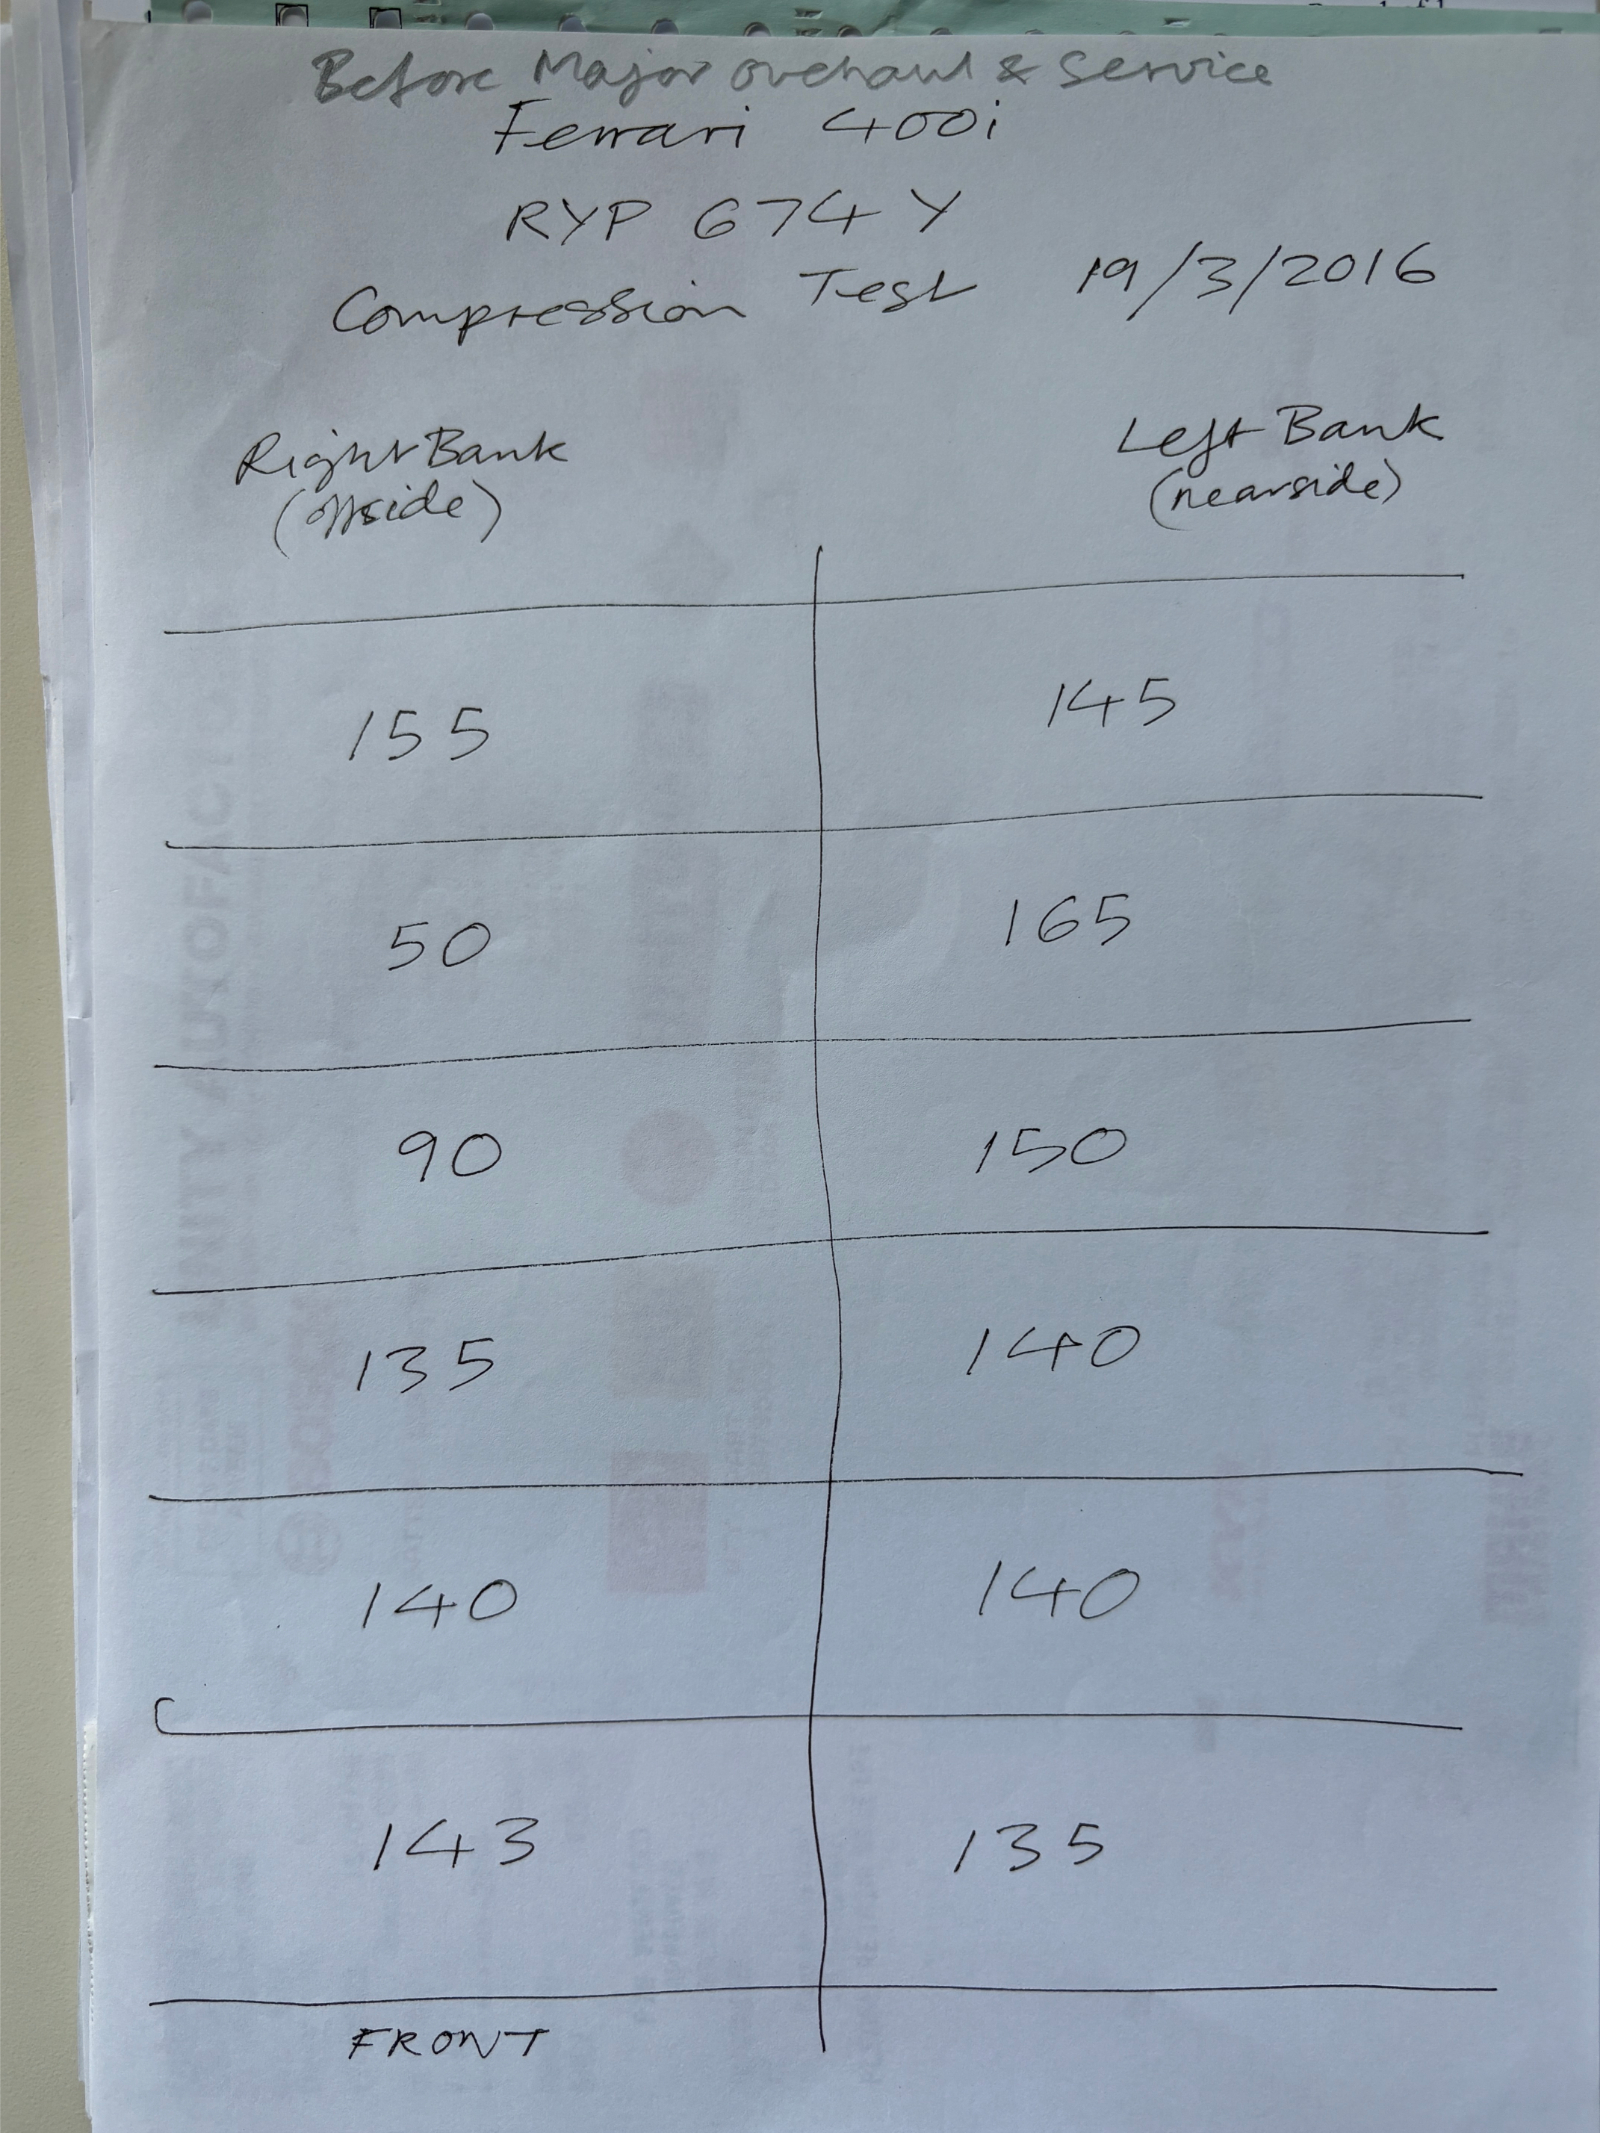 Before Major overhaul & Service
Ferrari 400i
RYP 674 Y
Compression Test 19/3/2016
Right Bank Left Bank
(offside) (nearside)
155 145
50 165
90 150
135 140
140 140
143 135
FRONT